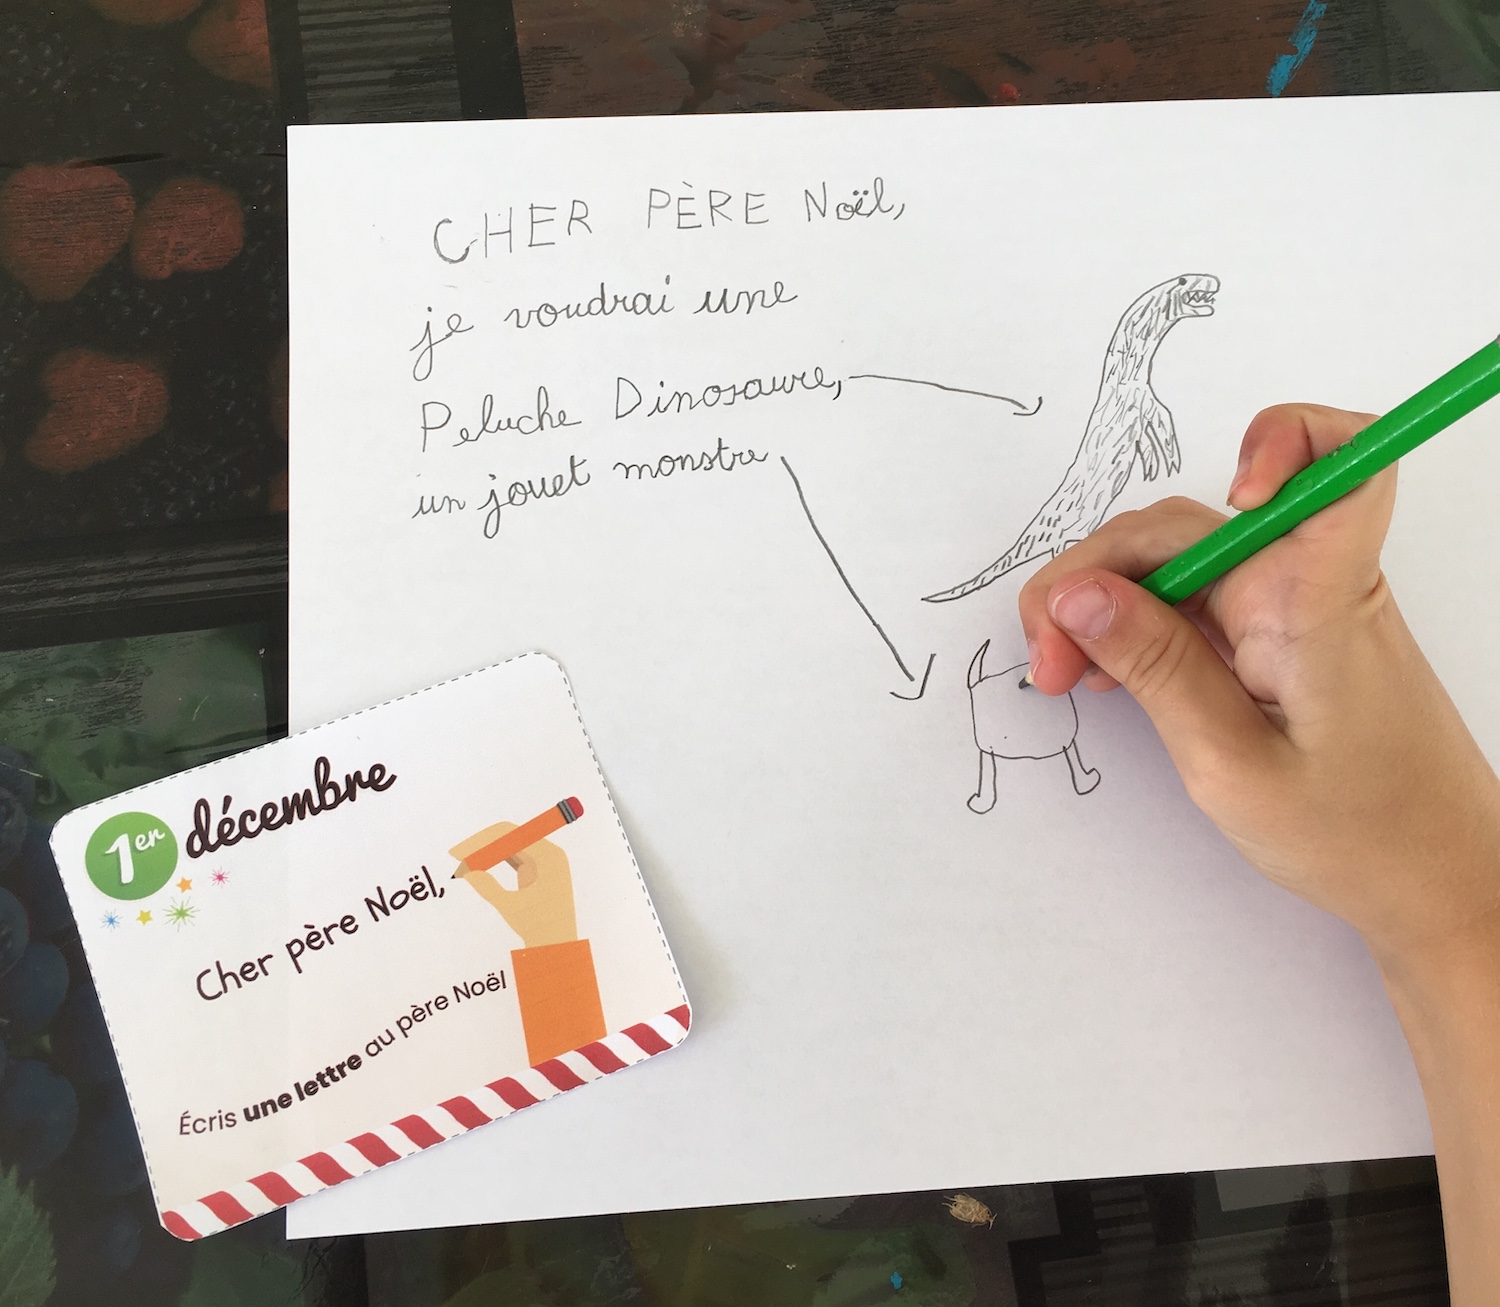 CHER PÈRE Noël,
je voudrai une
Peluche Dinosaure,
un jouet monstre
1er décembre
Cher père Noël,
Écris une lettre au père Noël